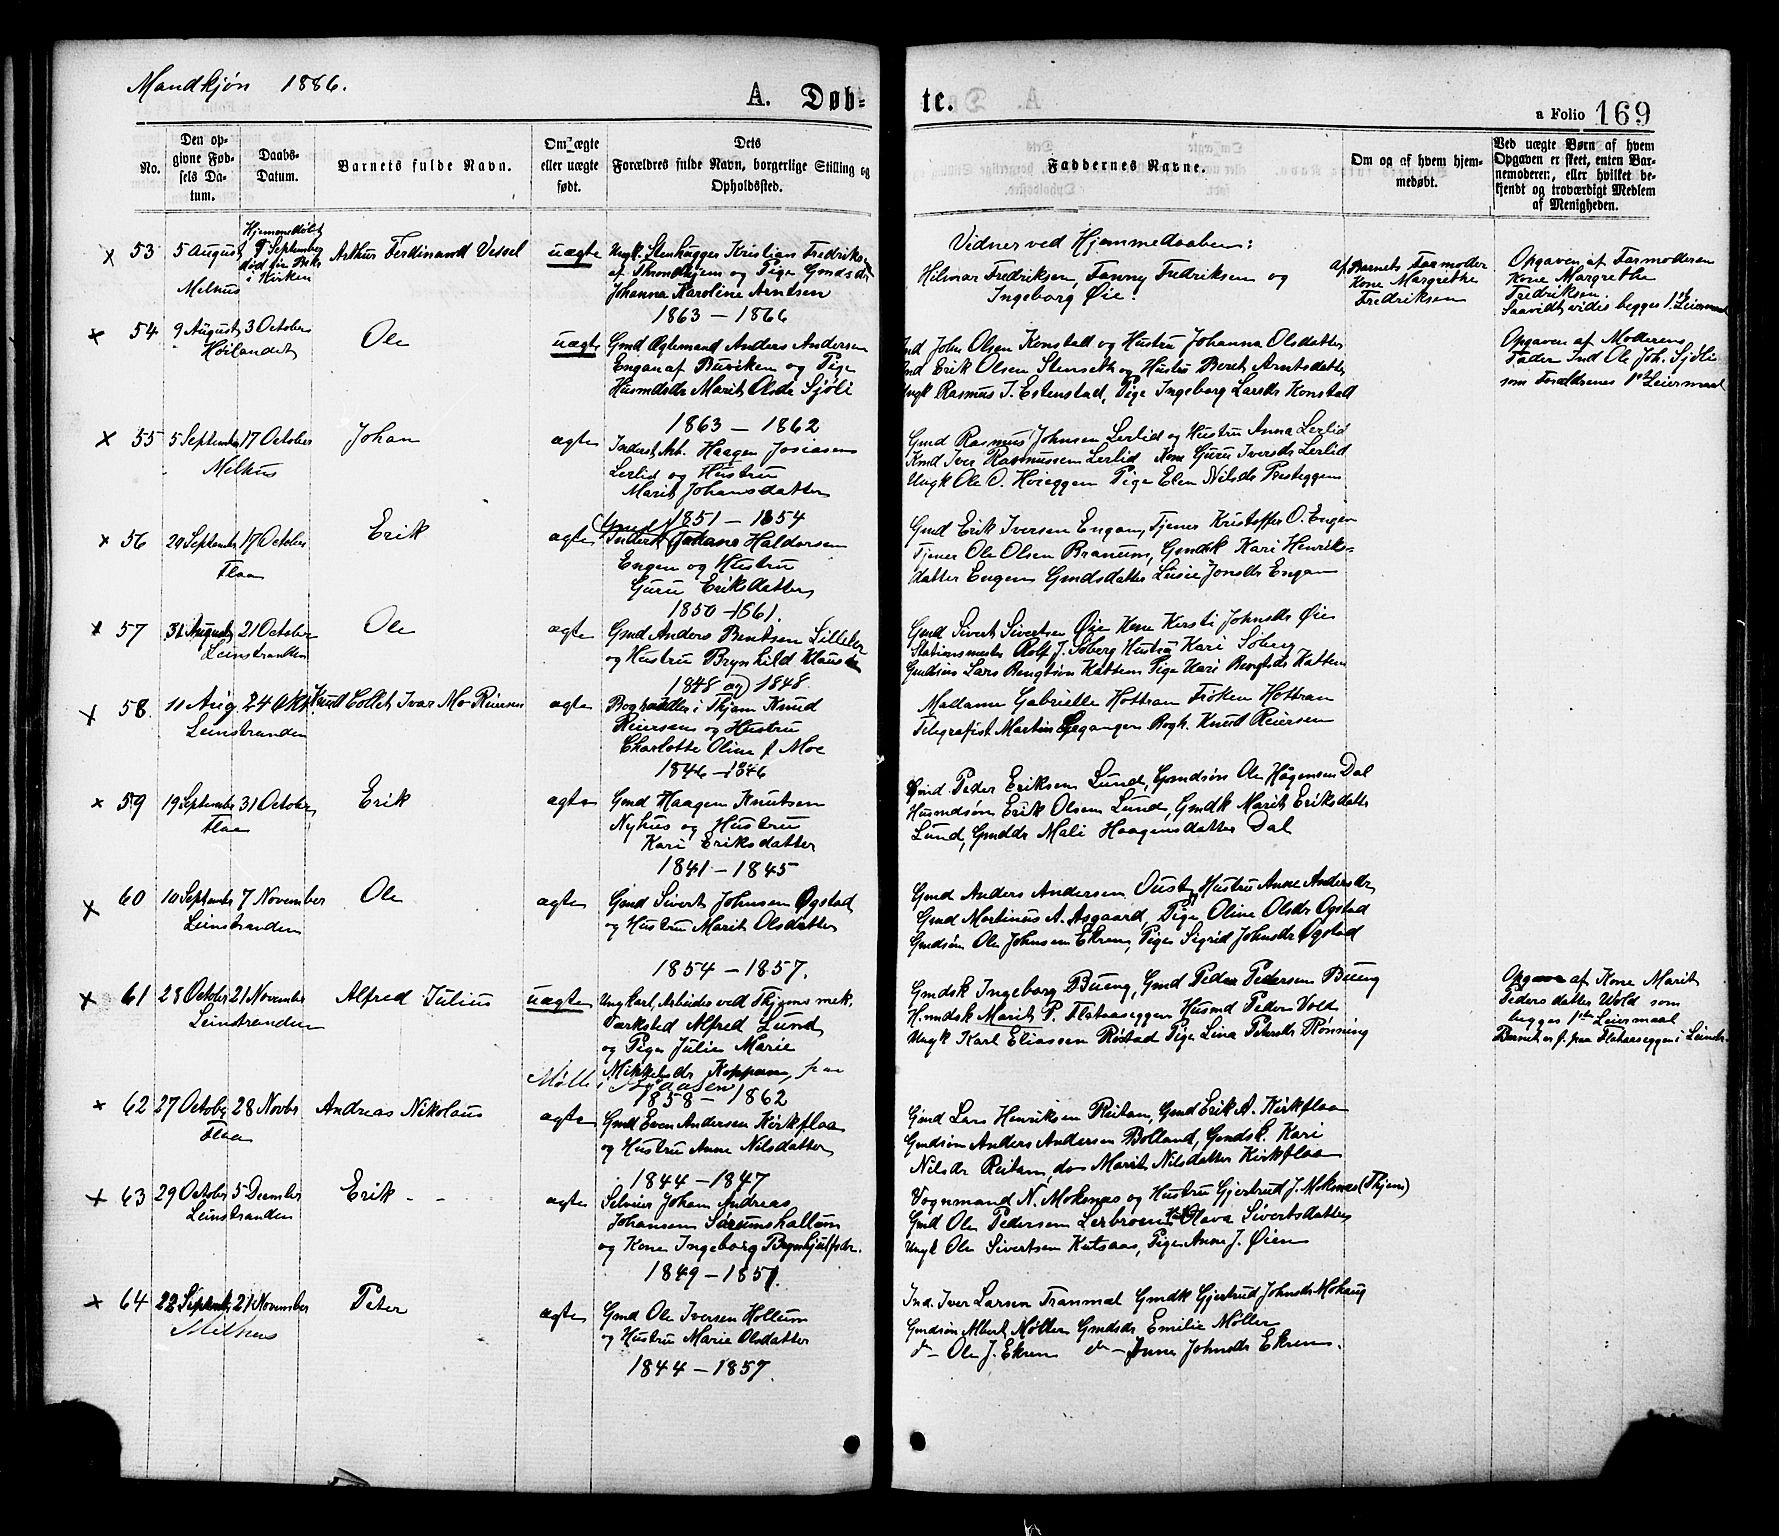 Mandkjøn 1886.
A. Døb-
te.
a Folio 169
No.
Den op-
givne Fød-
sels Da-
tum.
Daabs-
Datum.
Barnets fulde Navn.
Om ægte
eller uægte
født.
Dets
Forældres fulde Navn, borgerlige Stilling og
Opholdssted.
Faddernes Navne.
Om og af hvem hjem-
medøbt.
Ved uægte Børn af hvem
Opgaven er skeet, enten Bar-
nemoderen, eller hvilket be-
kjendt og troværdigt Medlem
af Menigheden.
x 53 5 August
Melhus
Hjemmedøbt
9 September
død før Bekr
i Kirken
Arthur Ferdinand Vessel
uægte
Ungk. Stenhugger Kristian Fredriks
af Throndhjem og Pige Gmdsdr
Johanna Karoline Arntsen
1863 - 1866
Vidner ved Hjemmedaaben:
Hilmar Fredriksen, Fanny Fredriksen og
Ingeborg Øie.
af Barnets Farmoder
Kone Margrethe
Fredriksen
Opgaven af Farmoderen
Kone Margrethe
Fredriksen.
Saavidt vides begges 1ste Leiermaal
x 54 9 August 3 October
Høilandet
Ole
uægte
Gmd Ægtemand Anders Andersen
Engan af Buviken og Pige
Husmdsdr Marit Olsdr Sjøli
1863 - 1862
Ind John Olsen Konstad og Hustru Johanna Olsdatter
Ind Erik Olsen Stenseth og Hustru Beret Arntsdatter
Ungk Rasmus J. Estenstad, Pige Ingeborg Larsdr Konstad
Opgaven af Moderens
Fader Ind Ole Joh. Sjøli
som Forældrenes 1ste Leiermaal
x 55 5 September 17 October
Melhus
Johan
ægte
Inderst Arb. Haagen Josiasen
Lerlid og Hustru
Marit Johansdatter
1851 - 1854
Gmd Rasmus Johnsen Lerlid og Hustru Anna Lerlid
Kmd Iver Rasmussen Lerlid Kone Guru Iversdr Lerlid
Ungk Ole O. Høieggen Pige Elen Nilsdr Presteggen
x 56 24 September 17 October
Flaa
Erik
ægte
Gmd
Inderst Haldorsen
Engen og Hustru
Guru Eriksdatter
1850 - 1861.
Gmd Erik Iversen Engan, Tjener Kristoffer O. Engen
Tjener Ole Olsen Branum, Gmdsk Kari Henriks-
datter Engen Gmdsdatter Lusie Jonsdr Engen
x 57 31 August 21 October
Leinstranden
Ole
ægte
Gmd Anders Bentsen Lilleler
og Hustru Brynhild Klausdr
1848 og 1848
Gmd Sivert Sivertsen Øije Kone Kersti Johnsdr Øie
Stationsmester Rolf J. Søberg Hustru Kari Søberg
Gmdsøn Lars Bengtsøn Kattem Pige Kari Bengtsdr Kattem
x 58 11 Aug 24 Okt.
Leinstranden
Knud Collet Ivar Mo Reiersen
ægte
Boghandler i Thjem Knud
Reiersen og Hustru
Charlotte Oline f. Moe
1846 - 1846
Madame Gabrielle Hottran Frøken Hottran
Telegrafist Martin Bogh. Knud Reiersen
x 59 19 September 31 October
Flaa
Erik
ægte
Gmd Haagen Knutsen
Nyhus og Hustru
Kari Eriksdatter
1841 - 1845
Gmd Peder Eriksen Lund, Gmdsøn Ole Hågensen Dal
Husmdsøn Erik Olsen Lund, Gmdk Marit Eriksdatter
Lund, Gmddr Mali Haagensdatter Dal
x 60 10 September 7 November
Leinstranden
Ole
ægte
Gmd Sivert Johnsen Øgstad
og Hustru Marit Olsdatter
1854 - 1857.
Gmd Anders Andersen Oust, Hustru Anne Andersdr
Gmd Martinus A. Aagaard, Pige Oline Olsdr Ogstad
Gmdsøn Ole Johnsen Ekren, Pige Sigrid Johnsdr Øgstad
x 61 28 October 21 November
Leinstranden
Alfred Julius
uægte
Ungkarl, Arbeider ved Thjems mek.
Værksted Alfred Lund
og Pige Julie Marie
Mikkelsdr Koppum, fra
1858 - 1862
Gmdsk Ingeborg Bueng, Gmd Peder Pedersen Bueng
Hsmdsk Marit P. Flataaseggen Husmd Peder Vold
Ungk Karl Eliassen Røstad Pige Lina Petersdr Rønning
Opgave af Kone Marit
Pedersdatter Wold som
begges 1ste Leiermaal
Barnet er f. paa Flataaseggen i Leinstr.
x 62 27 October 28 Novbr
Flaa
Andreas Nikolaus
ægte
Gmd Even Andersen Kirkflaa
og Hustru Anne Nilsdatter
1844 - 1847
Gmd Lars Henriksen Reitan, Gmd Erik A. Kirkflaa
Gmdsøn Anders Andersen Bolland, Gmdsk. Kari
Nilsdr Reitan, do Marit Nilsdatter Kirkflaa
x 63 29 October 5 December
Leinstranden
Erik - -
ægte
Selveier Johan Andreas
Johansen Sørumshallum
og Kone Ingeborg Brynhjulfsdr.
1849 - 1851.
Vognmand N. Moksnæs og Hustru Gjertrud J. Moksnæs (Thjem)
Gmd Ole Pedersen Lerbroen Olava Sivertsdatter
Ungk Ole Sivertsen Kutsaas, Pige Anne J. Øien
x 64 22 Septembr 21 November
Melhus
Peter
ægte
Gmd Ole Iversen Hollum
og Hustru Marie Olsdatter
1844 - 1857.
Ind. Iver Larsen Tranmal Gmdk Gjertrud Johnsdr Mohaug
Gmdsøn Albert Møller Gmdsdr Emilie Møller
do - Ole J. Ekren do - Anne Johnsdr Ekren.